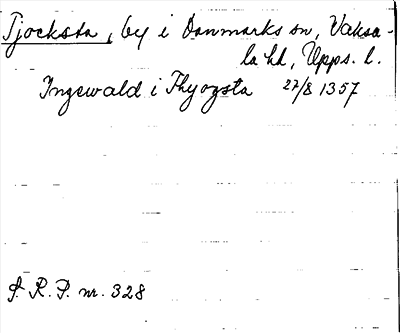 Tjocksta, by i Danmarks sn, Vaksa-
la hd, Upps. l.
Ingewald i Thyogsta 22/8 1357
S. R. P. nr. 328